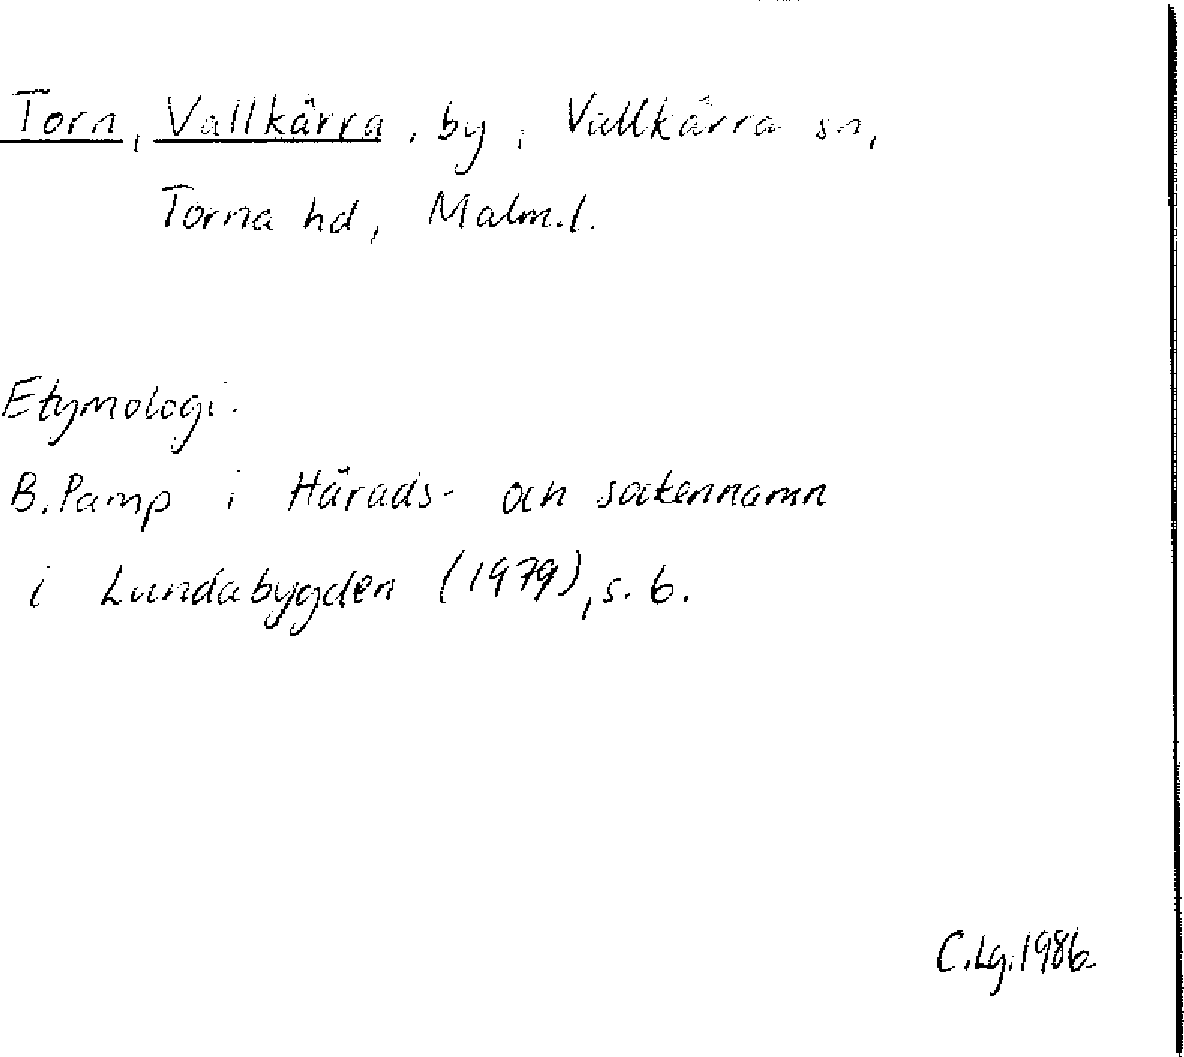 Torn, Vallkärra, by i Vallkärra sn,
Torna hd, Malm.l.
Etymologi.
B. Pamp i Härads- och sockennamn
i Lundabygden (1979), s. 6.
C.Lg. 1986